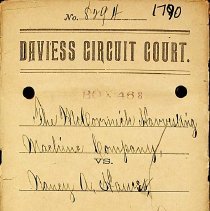 No. 8294 1790
DAVIESS CIRCUIT COURT.
BOX 468
The McCormick Harvesting
Machine Company,
VS.
Nancy A.